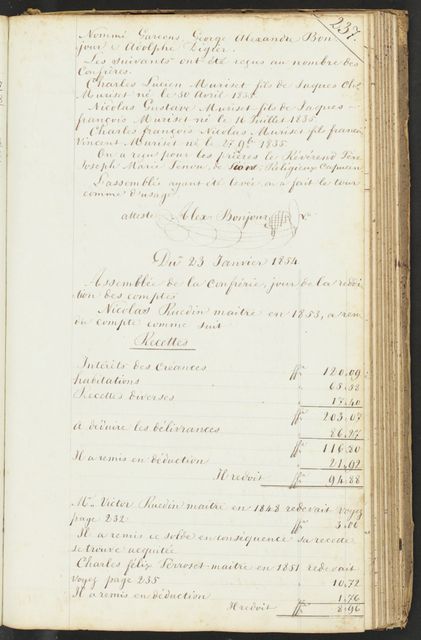 237.
Nommé Garcons, George Alexandre Bon
jour & Adolphe Digier.
Les suivants ont été reçus au nombre des
Confrères.
Charles Lucien Muriset fils de Jaques
Muriset né le 30 Avril 1834
Nicolas Gustave Muriset fils de Jaques
françois Muriset né le Juillet 1835
Charles françois Nicolas Muriset fils francois
Vincent Muriset né le 27 9b 1835
On a reçu pour les frières le Révérend Père
Joseph Marie de Religieux Capucin
L'assemblée ayant été levée on a fait le tour
comme d'usage
atteste Alex Bonjour
Du 23 Janvier 1854
Assemblée de la Confrérie, jour de la reddi
tion des comptes
Nicolas Ruedin maitre en 1853, a ren
du compte comme suit
Recettes
Intérêts des Créances ff 120,09
habitations " 65,58
Recettes diverses " 17,40
ff 203,07
à déduire les délivrances 86,27
ff 116,80
Il a remis en déduction " 21,92
Il redoit ff 94,88
Mr Victor Ruedin maitre en 1848 redevait voyez
page 232 ff 3,06
Il a remis ce solde en conséquence sa recette
se trouve acquitée
Charles félix Perroset maitre en 1851 redevait
voyez page 235 10,72
Il a remis en déduction 1,76
Il redoit ff 8,96